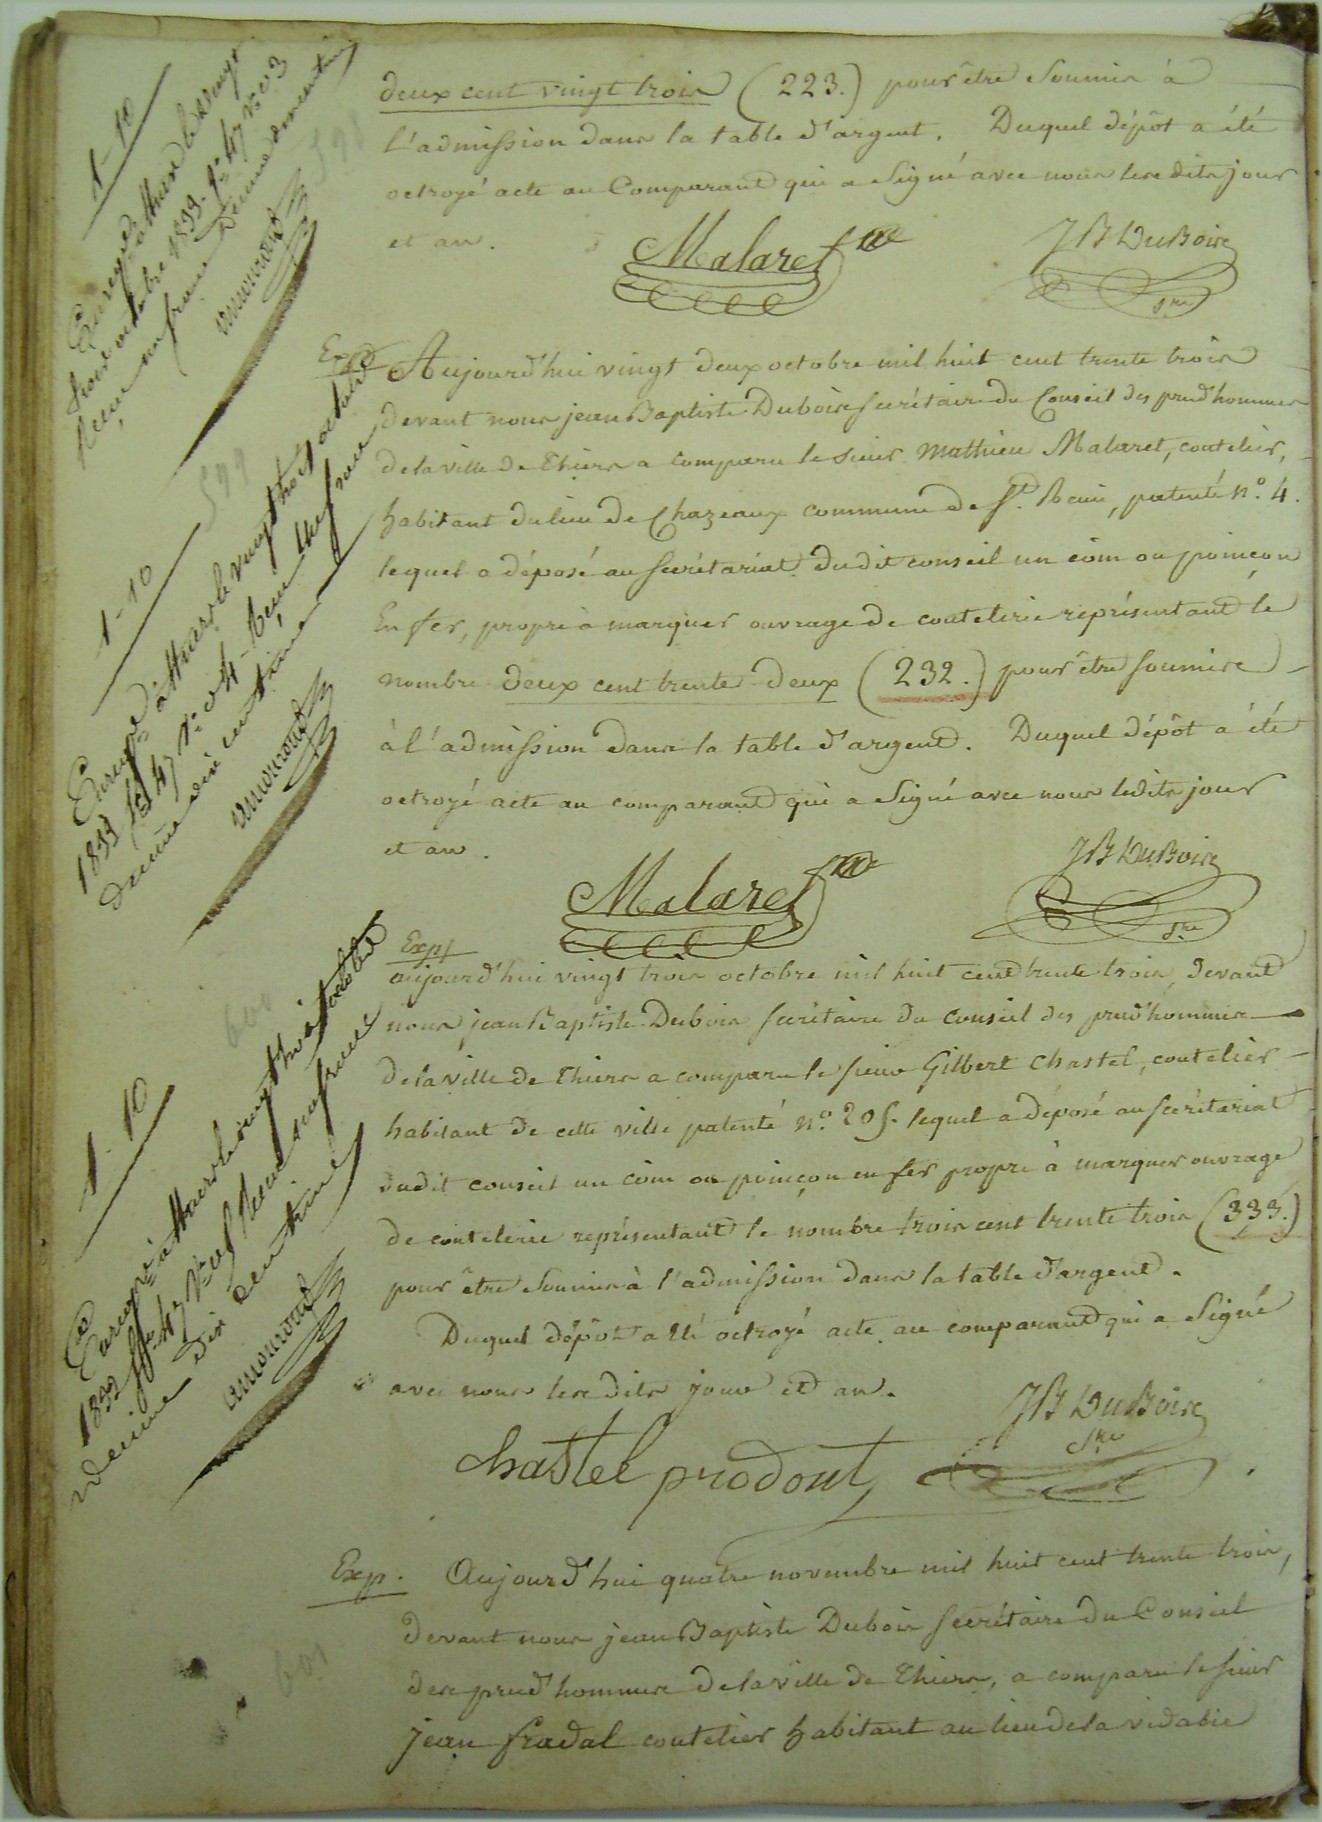 deux cent vingt trois (223.) pour être Soumis à
l'admission dans la table d'argent. Duquel dépôt a été
octroyé acte au Comparant qui a Signé avec nous lesdits jour
et an.
Malaret
JB DuBois
Sre
Exp
Aujourd'hui vingt deux octobre mil huit cent trente trois
devant nous jean Baptiste Dubois secrétaire du Conseil des prud'hommes
de la ville de Thiers a comparu le sieur Mathieu Malaret, coutelier,
habitant du lieu de Chazeaux commune de St. Remi, patenté n.° 4.
lequel a déposé au secrétariat dudit conseil un coin ou poinçon
En fer, propre à marquer ouvrage de coutelerie représentant le
nombre deux cent trente deux (232.) pour être soumis
à l'admission dans la table d'argent. Duquel dépôt a été
octroyé acte au comparant qui a Signé avec nous lesdits jour
et an.
Malaret
JB DuBois
Sre
Exp
aujourd'hui vingt trois octobre mil huit cent trente trois, devant
nous jean Baptiste Dubois secrétaire du conseil des prud'hommes
de la ville de Thiers a comparu le sieur Gilbert Chastel, coutelier
habitant de cette ville patenté n.° 205. lequel a déposé au secrétariat
dudit conseil un coin ou poinçon en fer propre à marquer ouvrage
de coutelerie représentant le nombre trois cent trente trois (333.)
pour être Soumis à l'admission dans la table d'argent.
Duquel dépôt a été octroyé acte au comparant qui a Signé
avec nous lesdits jour et an.
JB DuBois
Sre
chastel prodont
Exp. Aujourd'hui quatre novembre mil huit cent trente trois,
devant nous jean Baptiste Dubois secrétaire du Conseil
des prud'hommes de la ville de Thiers, a comparu le sieur
jean fradal coutelier habitant au lieu de la vidalie
1-10
598
1-10
599
1-10
600
601